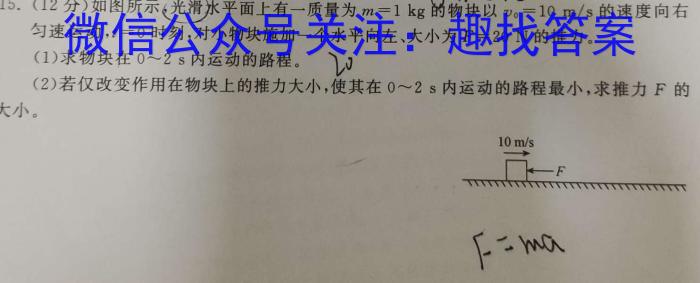 15.(12分)如图所示,光滑水平面上有一质量为m=1 kg的物块以v₀=10 m/s的速度向右
匀速运动,t=0时刻,对小物块施加一个水平向左、大小为F=20 N的推力。
微信公众号关注：趣找答案
(1)求物块在0～2 s内运动的路程。
20
(2)若仅改变作用在物块上的推力大小,使其在0～2 s内运动的路程最小,求推力F的
大小。
10 m/s
F
F=ma